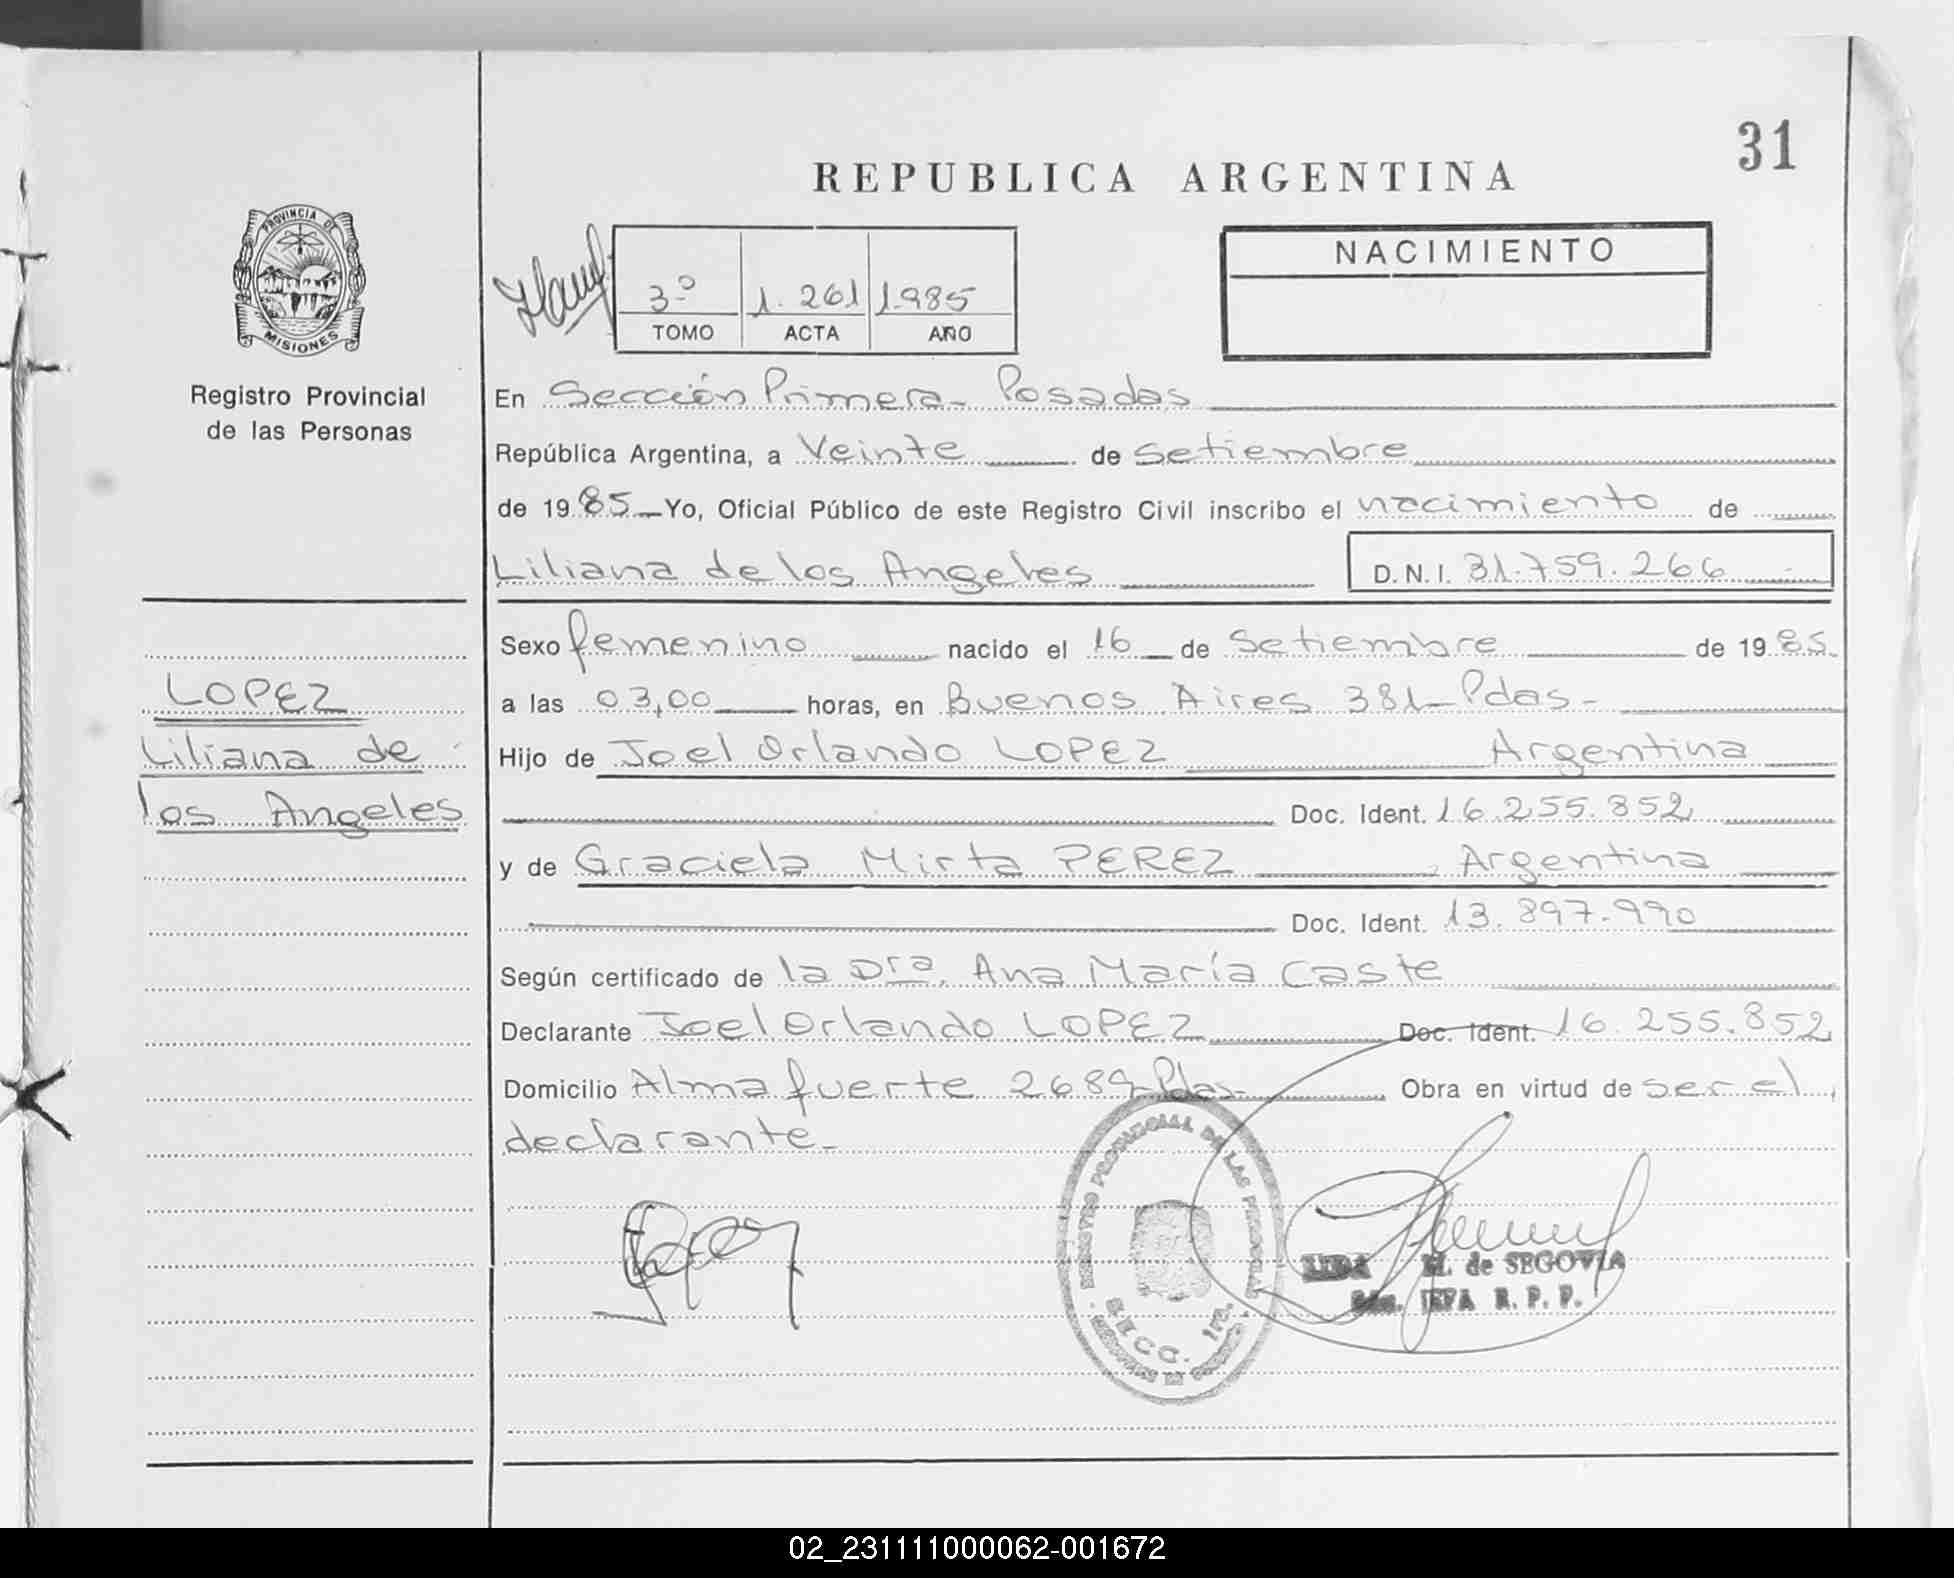 31
REPUBLICA ARGENTINA
PROVINCIA DE
MISIONES
Registro Provincial
de las Personas
3º 1.261 1985
TOMO ACTA AÑO
NACIMIENTO
En Sección Primera - Posadas
República Argentina, a Veinte de Setiembre
de 1985 Yo, Oficial Público de este Registro Civil inscribo el nacimiento de
Liliana de los Angeles D.N.I. 31.759.266
Sexo femenino nacido el 16 de Setiembre de 1985
LOPEZ
Liliana de
los Angeles
a las 03,00 horas, en Buenos Aires 381 - Pdas-
Hijo de Joel Orlando LOPEZ Argentina
Doc. Ident. 16.255.852
y de Graciela Mirta PEREZ, Argentina
Doc. Ident. 13.897.990
Según certificado de la Dra. Ana María Caste
Declarante Joel Orlando LOPEZ Doc. Ident. 16.255.852
Domicilio Almafuerte 2689-Pdas- Obra en virtud de ser el
declarante-
REGISTRO PROVINCIAL DE LAS PERSONAS
SECC. 1ra.
M. de SEGOVIA
R. P. P.
02_231111000062-001672